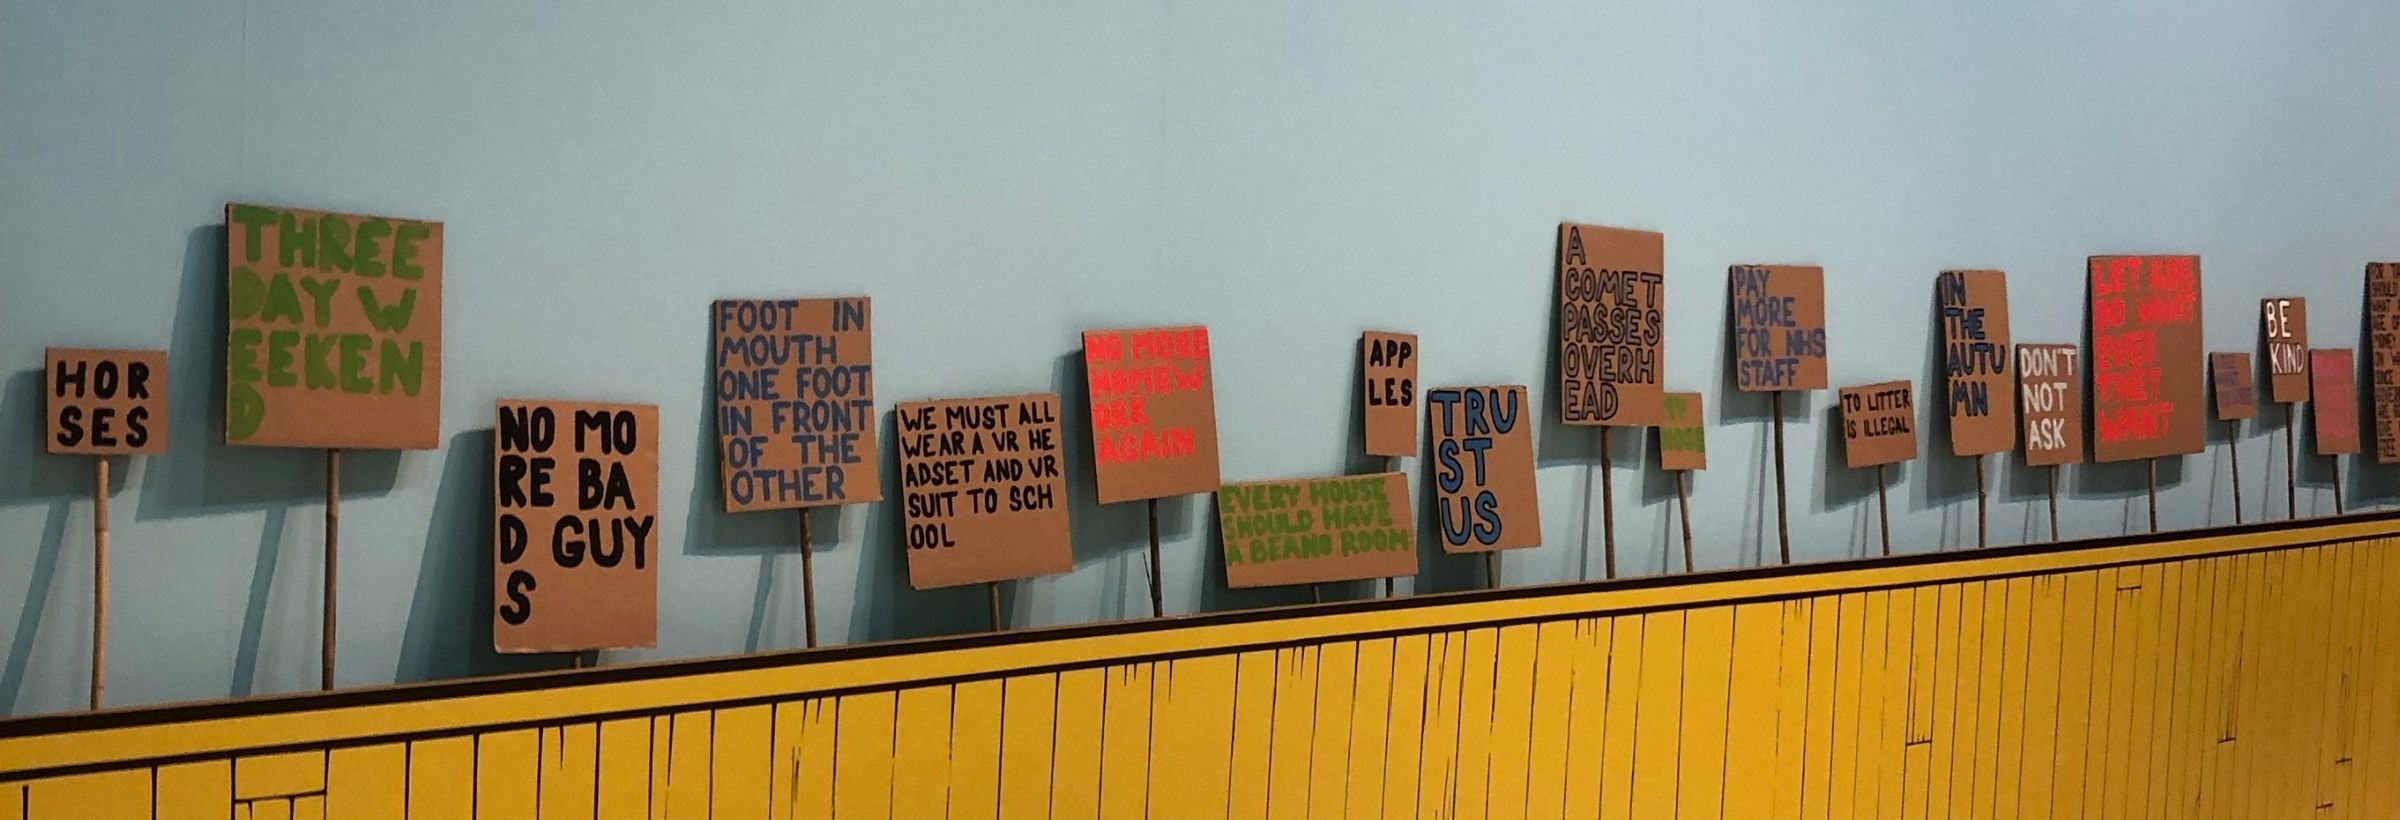 HOR
SES
THREE
DAY W
EEKEN
D
NO MO
RE BA
D GUY
S
FOOT IN
MOUTH
ONE FOOT
IN FRONT
OF THE
OTHER
WE MUST ALL
WEAR A VR HE
ADSET AND VR
SUIT TO SCH
OOL
NO MORE
HOMEW
ORK
AGAIN
EVERY HOUSE
SHOULD HAVE
A BEANO ROOM
APP
LES
TRU
ST
US
A
COMET
PASSES
OVERH
EAD
PAY
MORE
FOR NHS
STAFF
TO LITTER
IS ILLEGAL
IN
THE
AUTU
MN
DON'T
NOT
ASK
LET KIDS
DO WHAT
EVER
THEY
WANT
BE
KIND